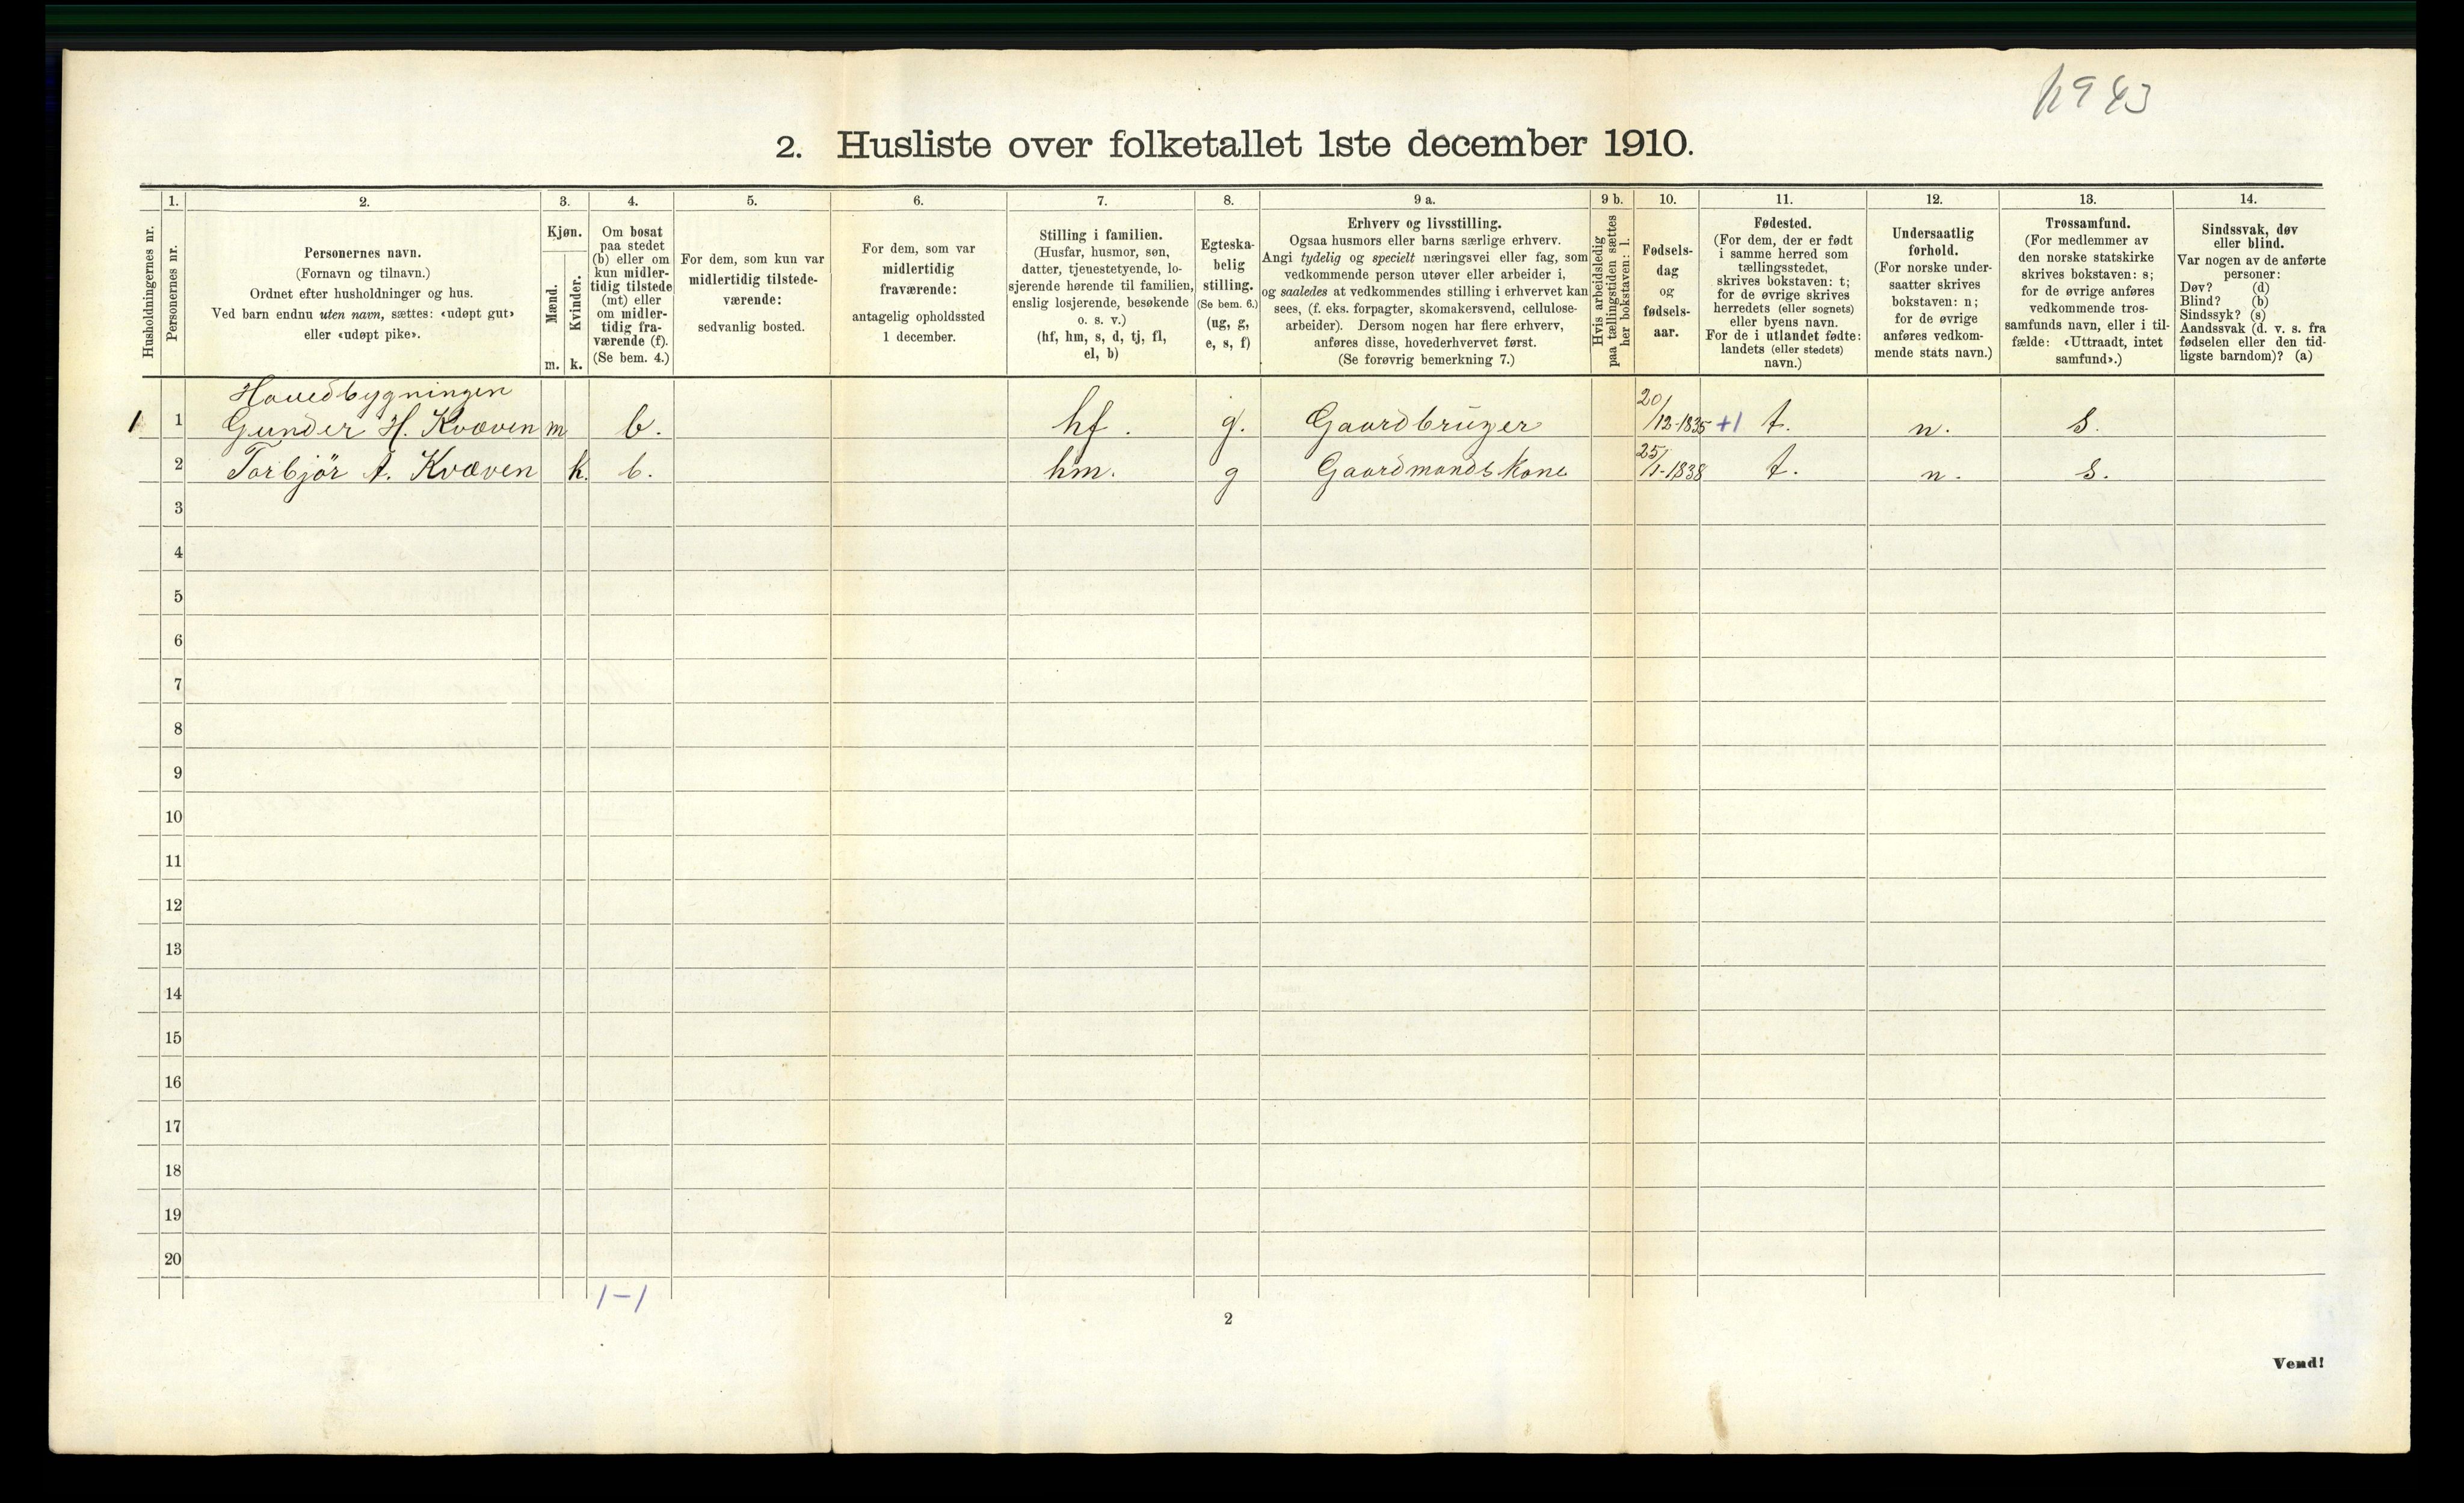 2. Husliste over folketallet 1ste december 1910.
Husholdningernes nr.
1.
Personernes nr.
2.
Personernes navn.
(Fornavn og tilnavn.)
Ordnet efter husholdninger og hus.
Ved barn endnu uten navn, sættes: «udøpt gut»
eller «udøpt pike».
3.
Kjøn.
Mænd.
m.
Kvinder.
k.
4.
Om bosat
paa stedet
(b) eller om
kun midler-
tidig tilstede
(mt) eller
om midler-
tidig fra-
værende (f).
(Se bem. 4.)
5.
For dem, som kun var
midlertidig tilstede-
værende:
sedvanlig bosted.
6.
For dem, som var
midlertidig
fraværende:
antagelig opholdssted
1 december.
7.
Stilling i familien.
(Husfar, husmor, søn,
datter, tjenestetyende, lo-
sjerende hørende til familien,
enslig losjerende, besøkende
o. s. v.)
(hf, hm, s, d, tj, fl,
el, b)
8.
Egteska-
belig
stilling.
(Se bem. 6.)
(ug, g,
e, s, f)
9 a.
Erhverv og livsstilling.
Ogsaa husmors eller barns særlige erhverv.
Angi tydelig og specielt næringsvei eller fag, som
vedkommende person utøver eller arbeider i,
og saaledes at vedkommendes stilling i erhvervet kan
sees, (f. eks. forpagter, skomakersvend, cellulose-
arbeider). Dersom nogen har flere erhverv,
anføres disse, hovederhvervet først.
(Se forøvrig bemerkning 7.)
9 b.
Hvis arbeidsledig
paa tællingstiden sættes
her bokstaven: l.
10.
Fødsels-
dag
og
fødsels-
aar.
11.
Fødested.
(For dem, der er født
i samme herred som
tællingsstedet,
skrives bokstaven: t;
for de øvrige skrives
herredets (eller sognets)
eller byens navn.
For de i utlandet fødte:
landets (eller stedets)
navn.)
12.
Undersaatlig
forhold.
(For norske under-
saatter skrives
bokstaven: n;
for de øvrige
anføres vedkom-
mende stats navn.)
13.
Trossamfund.
(For medlemmer av
den norske statskirke
skrives bokstaven: s;
for de øvrige anføres
vedkommende tros-
samfunds navn, eller i til-
fælde: «Uttraadt, intet
samfund».)
14.
Sindssvak, døv
eller blind.
Var nogen av de anførte
personer:
Døv? (d)
Blind? (b)
Sindssyk? (s)
Aandssvak (d. v. s. fra
fødselen eller den tid-
ligste barndom)? (a)
Hovedbygningen
1 1 Gunder H. Kvæven m b. hf. g. Gaardbruger 20/12-1835 +1 t. n. s.
2 Torbjör A. Kvæven k. b. hm. g Gaardmandskone 25/1-1838 t. n. s.
3
4
5
6
7
8
9
10
11
12
13
14
15
16
17
18
19
20
1-1
2
Vend!